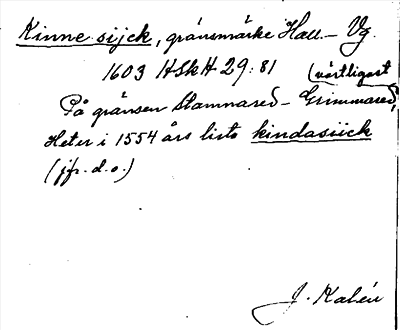 Kinne sijck, gränsmärke Hall. – Vg.
1603 HSkH 29:81 (västligast
På gränsen Stamnared – Grimmared,
Heter i 1554 års lista kindasiick
(jfr. d.o.)
J. Kalén